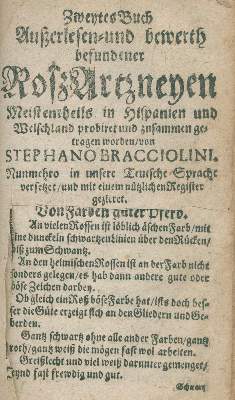 Zweytes Buch
Außerlesen- und bewerth
befundener
Roß-Artzneyen
Meistentheils in Hispanien und
Welschland probiret und zusammen ge-
tragen worden/von
STEPHANO BRACCIOLINI.
Nunmehro in unsere Teutsche Sprach
versetzet/und mit einem nützlichen Register
gezieret.
Von Farben guter Pferd.
An vielen Rossen ist löblich äschen Farb/mit
eine dunckeln schwartzen linien über den Rücken/
biß zum Schwantz.
An den helmischen Rossen ist an der Farb nicht
sonders gelegen/es hab dann andere gute oder
böse Zeichen darbey.
Ob gleich ein Roß böse Farbe hat/ists doch bes-
ser die Güte erzeigt sich an den Gliedern und Ge-
berden.
Gantz schwartz ohne alle ander Farben/gantz
roth/gantz weiß die mögen fast wol arbeiten.
Greißlecht und viel weiß darunter gemenget/
seynd fast frewdig und gut.
Schwartz